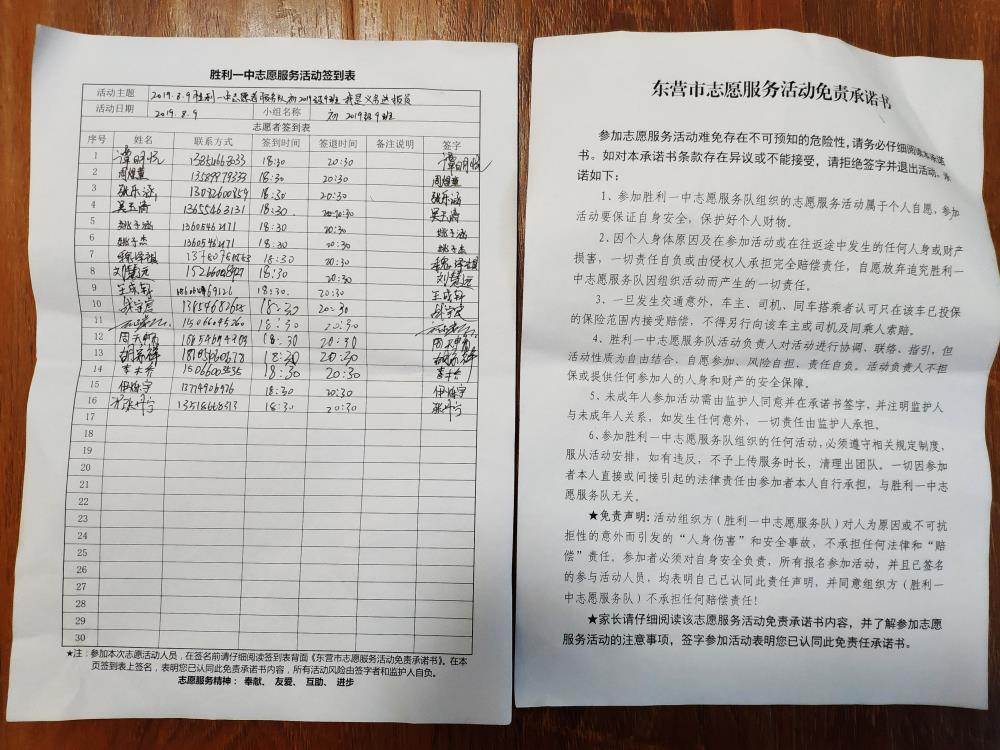 胜利一中志愿服务活动签到表
活动主题 2019.8.9胜利一中志愿者服务队初2019级9班 我是义务送报员
活动日期 2019.8.9 小组名称 初2019级9班
志愿者签到表
序号 姓名 联系方式 签到时间 签退时间 备注说明 签字
1 18:30 20:30
2 周煜童 13589979333 18:30 20:30 周煜童
3 张乐涵 18:30 20:30 张乐涵
4 13655463131 18:30 20:30
5 姚子涵 13605462171 18:30 20:30 姚子涵
6 姚子杰 13605462171 18:30 20:30 姚子杰
7 18:30 20:30
8 刘慧远 18:30 20:30 刘慧远
9 18:30 20:30
10 18:30 20:30
11 15066045260 18:30 20:30
12 18:30 20:30
13 18:30 20:30
14 18:30 20:30
15 18:30 20:30
16 18:30 20:30
17
18
19
20
21
22
23
24
25
26
27
28
29
30
★注:参加本次志愿活动人员,在签名前请仔细阅读签到表背面《东营市志愿服务活动免责承诺书》。在本
页签到表上签名,表明您已认同此免责承诺书内容,所有活动风险由签字者和监护人自负。
志愿服务精神: 奉献、 友爱、 互助、 进步
东营市志愿服务活动免责承诺书
参加志愿服务活动难免存在不可预知的危险性,请务必仔细阅读本承诺
书。如对本承诺书条款存在异议或不能接受,请拒绝签字并退出活动。承
诺如下:
1、参加胜利一中志愿服务队组织的志愿服务活动属于个人自愿,参加
活动要保证自身安全,保护好个人财物。
2、因个人身体原因及在参加活动或在往返途中发生的任何人身或财产
损害,一切责任自负或由侵权人承担完全赔偿责任,自愿放弃追究胜利一
中志愿服务队因组织活动而产生的一切责任。
3、一旦发生交通意外,车主、司机、同车搭乘者认可只在该车已投保
的保险范围内接受赔偿,不得另行向该车主或司机及同乘人索赔。
4、胜利一中志愿服务队活动负责人对活动进行协调、联络、指引,但
活动性质为自由结合、自愿参加、风险自担、责任自负。活动负责人不担
保或提供任何参加人的人身和财产的安全保障。
5、未成年人参加活动需由监护人同意并在承诺书签字,并注明监护人
与未成年人关系,如发生任何意外,一切责任由监护人承担。
6、参加胜利一中志愿服务队组织的任何活动,必须遵守相关规定制度,
服从活动安排,如有违反,不予上传服务时长,清理出团队。一切因参加
者本人直接或间接引起的法律责任由参加者本人自行承担,与胜利一中志
愿服务队无关。
★免责声明:活动组织方(胜利一中志愿服务队)对人为原因或不可抗
拒性的意外而引发的“人身伤害”和安全事故,不承担任何法律和“赔
偿”责任,参加者必须对自身安全负责,所有报名参加活动,并且已签名
的参与活动人员,均表明自己已认同此责任声明,并同意组织方(胜利一
中志愿服务队)不承担任何赔偿责任!
★家长请仔细阅读该志愿服务活动免责承诺书内容,并了解参加志愿
服务活动的注意事项,签字参加活动表明您已认同此免责任承诺书。